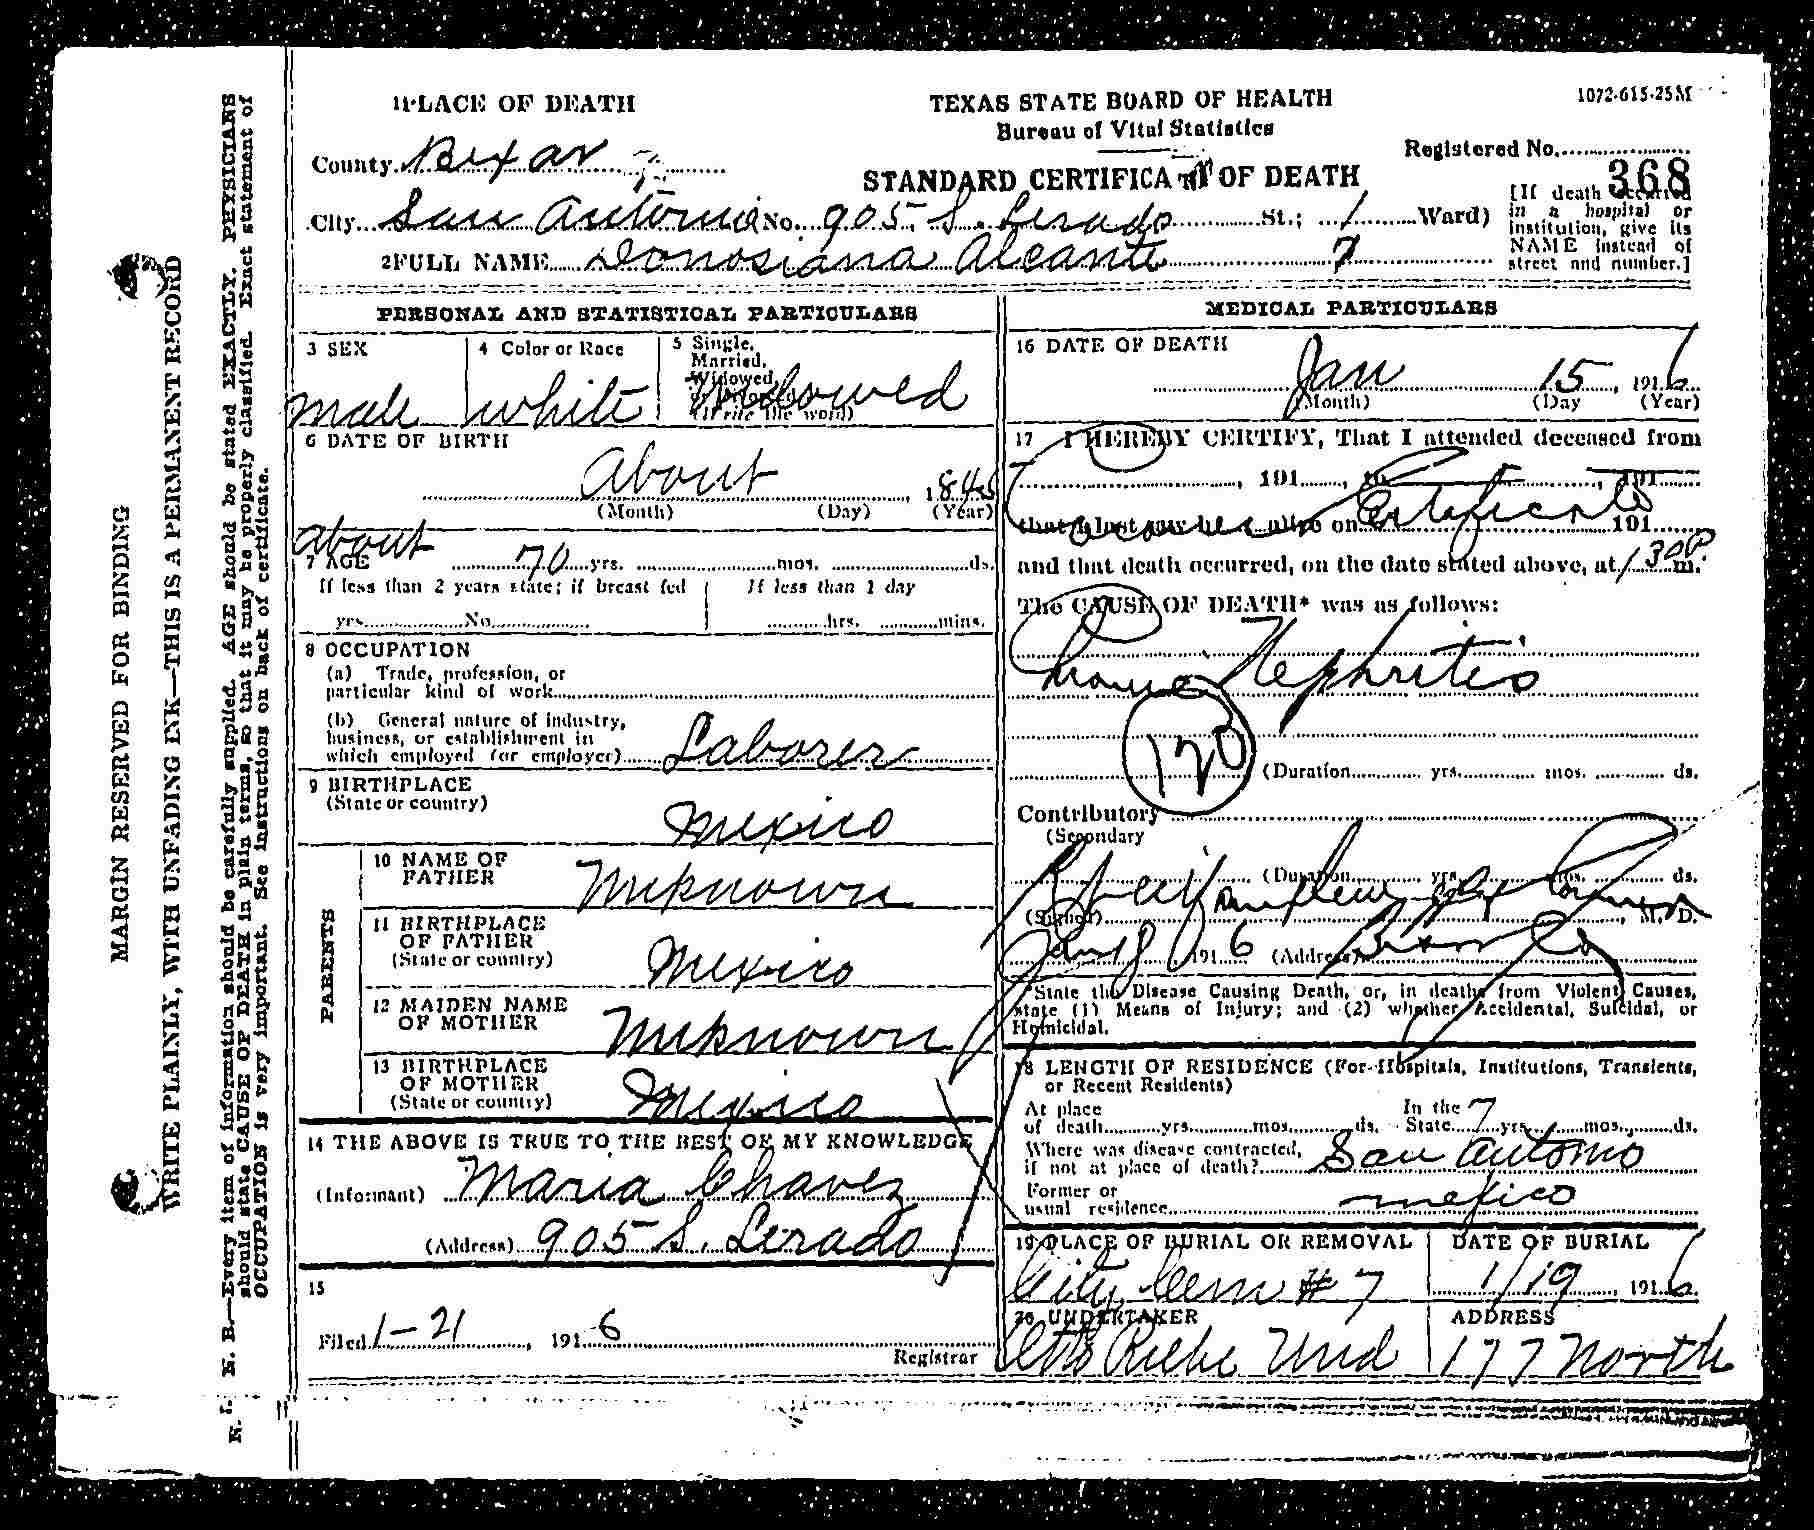 MARGIN RESERVED FOR BINDING
WRITE PLAINLY, WITH UNFADING INK—THIS IS A PERMANENT RECORD
N. B.—Every item of information should be carefully supplied. AGE should be stated EXACTLY. PHYSICIANS
should state CAUSE OF DEATH in plain terms, so that it may be properly classified. Exact statement of
OCCUPATION is very important. See instructions on back of certificate.
1 PLACE OF DEATH
TEXAS STATE BOARD OF HEALTH
1072-615-25M
Bureau of Vital Statistics
County Bexar
Registered No. 368
STANDARD CERTIFICATE OF DEATH
City San Antonio No. 905 S. Lerado St.; 1 Ward)
[If death occurred
in a hospital or
institution, give its
NAME instead of
street and number.]
2 FULL NAME Donosiana Alcante 7
PERSONAL AND STATISTICAL PARTICULARS
3 SEX
male
4 Color or Race
white
5 Single,
Married,
Widowed,
(Write the word)
Widowed
6 DATE OF BIRTH
About , 1845
(Month) (Day) (Year)
about
7 AGE 70 yrs. mos. ds.
If less than 2 years state; if breast fed
yrs. No.
If less than 1 day
hrs. mins.
8 OCCUPATION
(a) Trade, profession, or
particular kind of work
(b) General nature of industry,
business, or establishment in
which employed (or employer) Laborer
9 BIRTHPLACE
(State or country)
Mexico
PARENTS
10 NAME OF
FATHER
Unknown
11 BIRTHPLACE
OF FATHER
(State or country)
Mexico
12 MAIDEN NAME
OF MOTHER
Unknown
13 BIRTHPLACE
OF MOTHER
(State or country)
Mexico
14 THE ABOVE IS TRUE TO THE BEST OF MY KNOWLEDGE
(Informant) Maria Chavez
(Address) 905 S. Lerado
15
Filed 1-21, 1916
Registrar
MEDICAL PARTICULARS
16 DATE OF DEATH
Jan 15, 1916
(Month) (Day (Year)
17 I HEREBY CERTIFY, That I attended deceased from
, 191 , to , 191
that I last saw h alive on 191
Certificate
and that death occurred, on the date stated above, at 1 30 P. m.
The CAUSE OF DEATH* was as follows:
Nephritis
120
(Duration yrs. mos. ds.
Contributory
(Secondary
(Duration yrs. mos. ds.
(Signed) , M. D.
Jan 18 1916 (Address) Bexar Co
*State the Disease Causing Death, or, in deaths from Violent Causes,
state (1) Means of Injury; and (2) whether Accidental, Suicidal, or
Homicidal.
18 LENGTH OF RESIDENCE (For Hospitals, Institutions, Transients,
or Recent Residents)
At place
of death yrs. mos. ds.
In the 7
State 7 yrs. mos. ds.
Where was disease contracted,
if not at place of death? San Antonio
Former or
usual residence mexico
19 PLACE OF BURIAL OR REMOVAL
City Cem # 7
DATE OF BURIAL
1/19, 1916
20 UNDERTAKER
Otto Riebe Und
ADDRESS
177 North